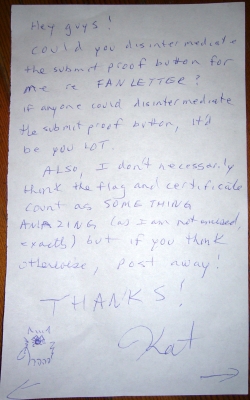 Hey guys!
Could you disintermediate
the submit proof button for
me re FAN LETTER?
if anyone could disintermediate
the submit proof button, it'd
be you LOT.
ALSO, I don't necessarily
think the flag and certificate
count as SOMETHING
AMAZING (w) I am not amused,
exactly) but if you think
otherwise, post away!
THANKS!
Kat